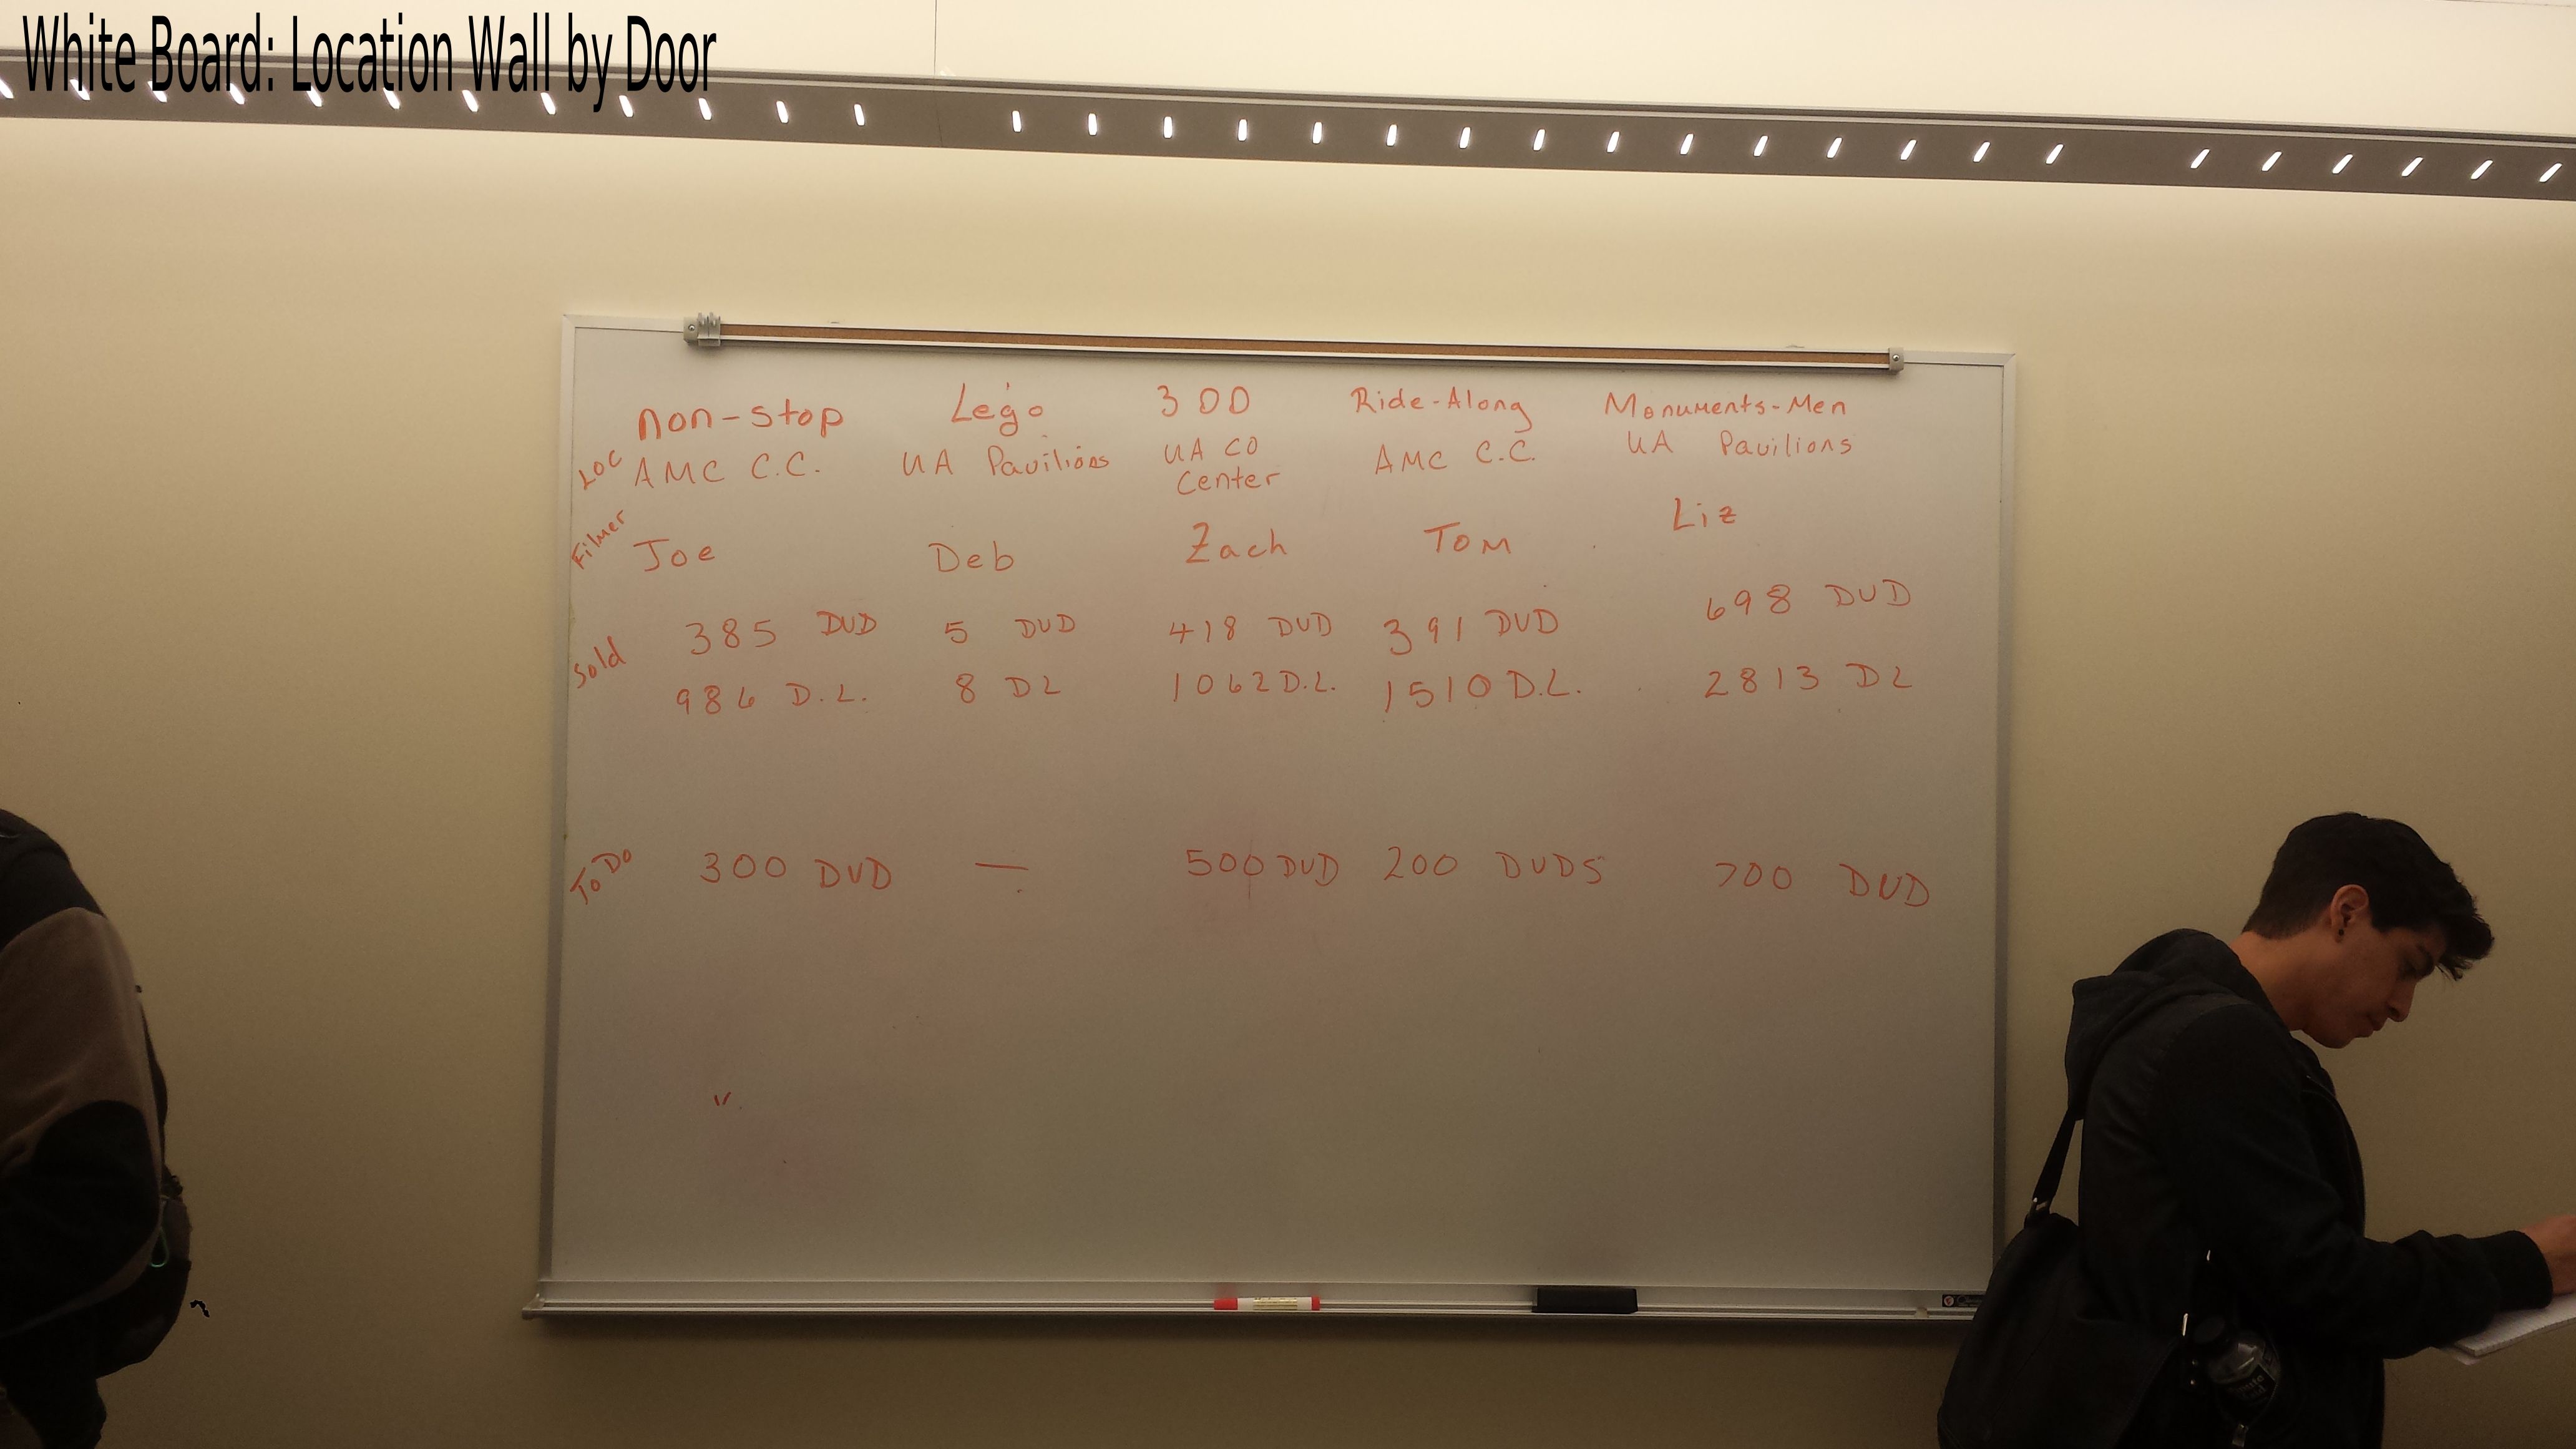 White Board: Location Wall by Door
non-stop Lego 300 Ride-Along Monuments-Men
LOC AMC C.C. UA Pavilions UA CO Center AMC C.C. UA Pavilions
Filmer Joe Deb Zach Tom Liz
Sold 385 DVD 5 DVD 418 DVD 391 DVD 698 DVD
986 D.L. 8 DL 1062 D.L. 1510 D.L. 2813 DL
To Do 300 DVD — 500 DVD 200 DVDS 700 DVD